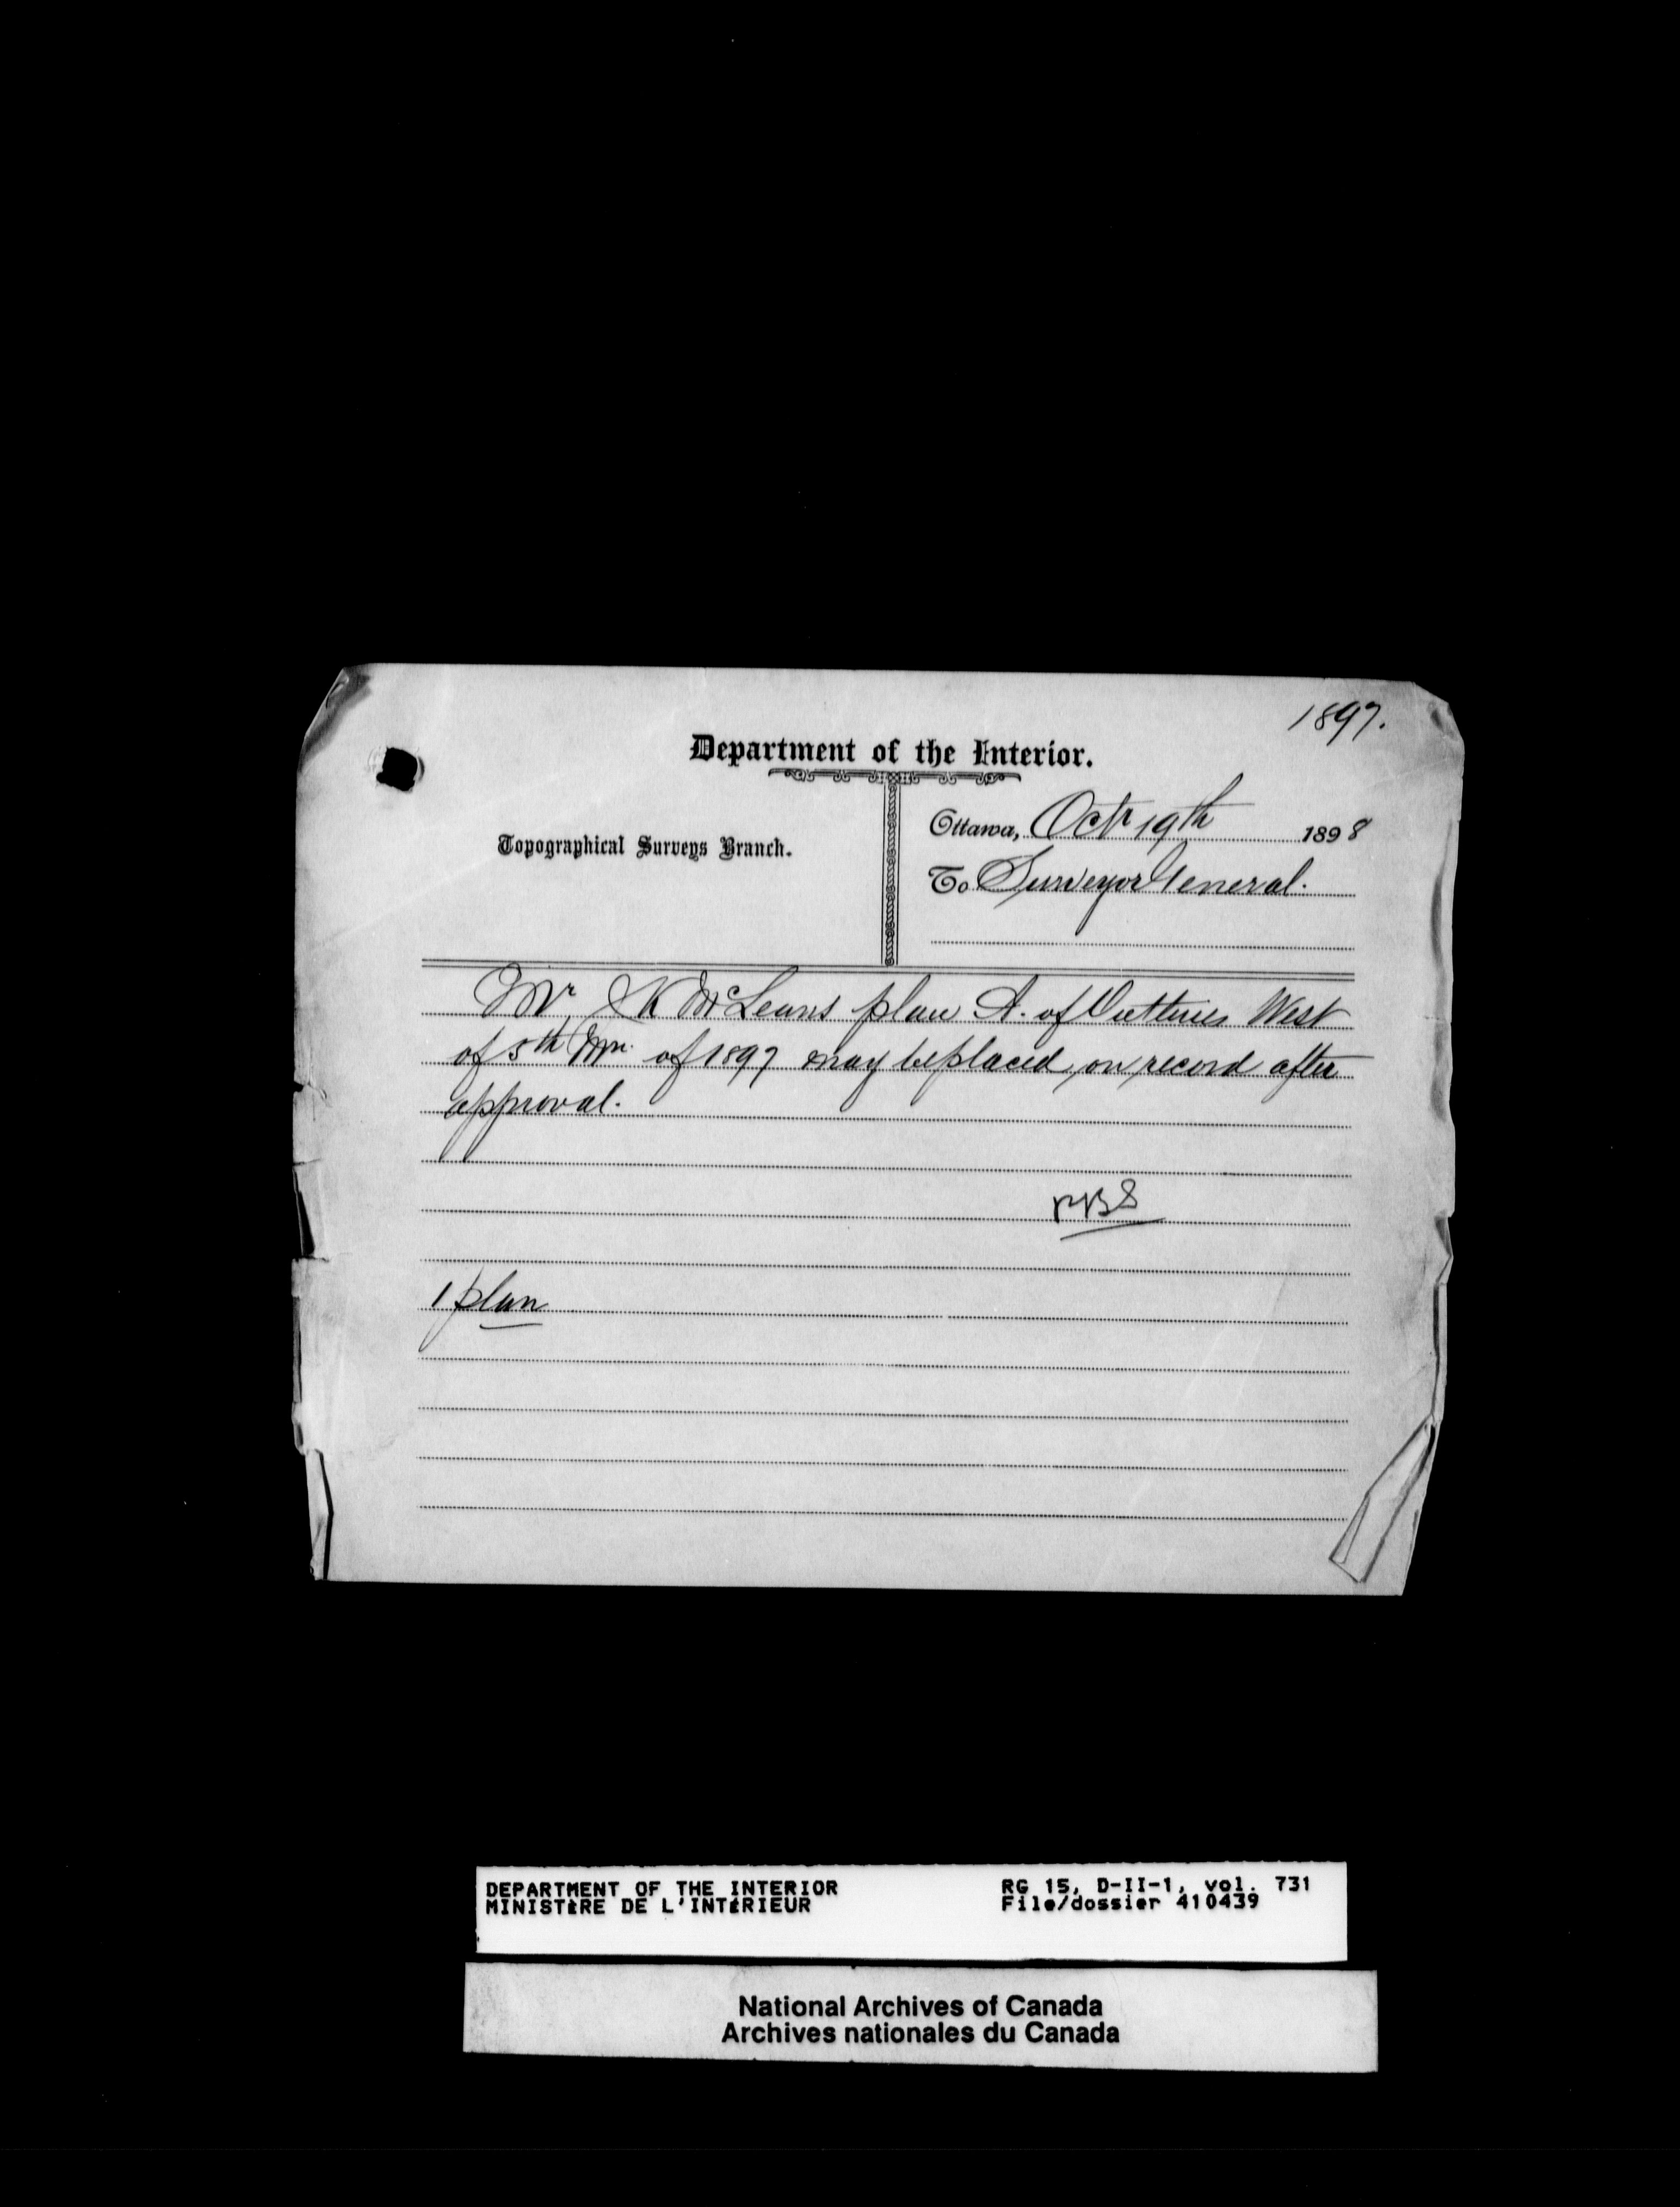 1897.
Department of the Interior.
Topographical Surveys Branch.
Ottawa, Octr 19th 1898
To Surveyor General.
Mr J K McLeans plan A. of Outlines West
of 5th Mn. of 1897 may be placed on record after
approval.
1 plan
DEPARTMENT OF THE INTERIOR
MINISTÈRE DE L'INTÉRIEUR
RG 15, D-II-1, vol. 731
File/dossier 410439
National Archives of Canada
Archives nationales du Canada